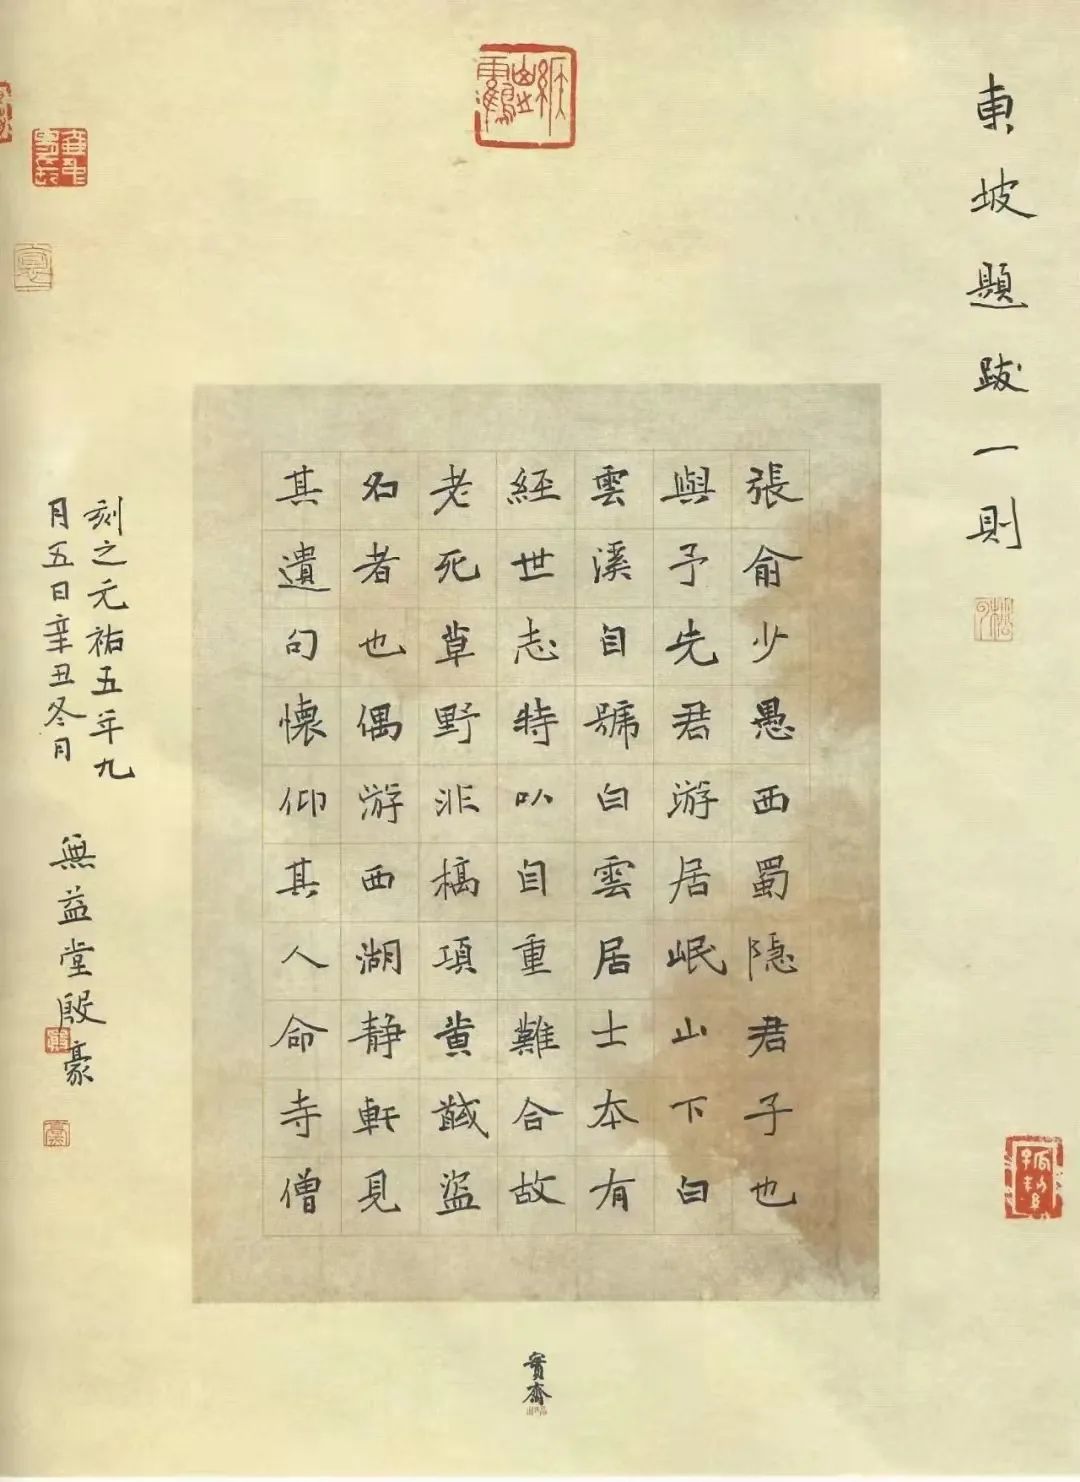 東坡題跋一則
張俞少愚西蜀隱君子也
與予先君游居岷山下白
雲溪自號白雲居士本有
經世志特以自重難合故
老死草野非槁項黃馘盜
名者也偶游西湖靜軒見
其遺句懷仰其人命寺僧
刻之元祐五年九
月五日辛丑冬月
無益堂殷豪
實齋